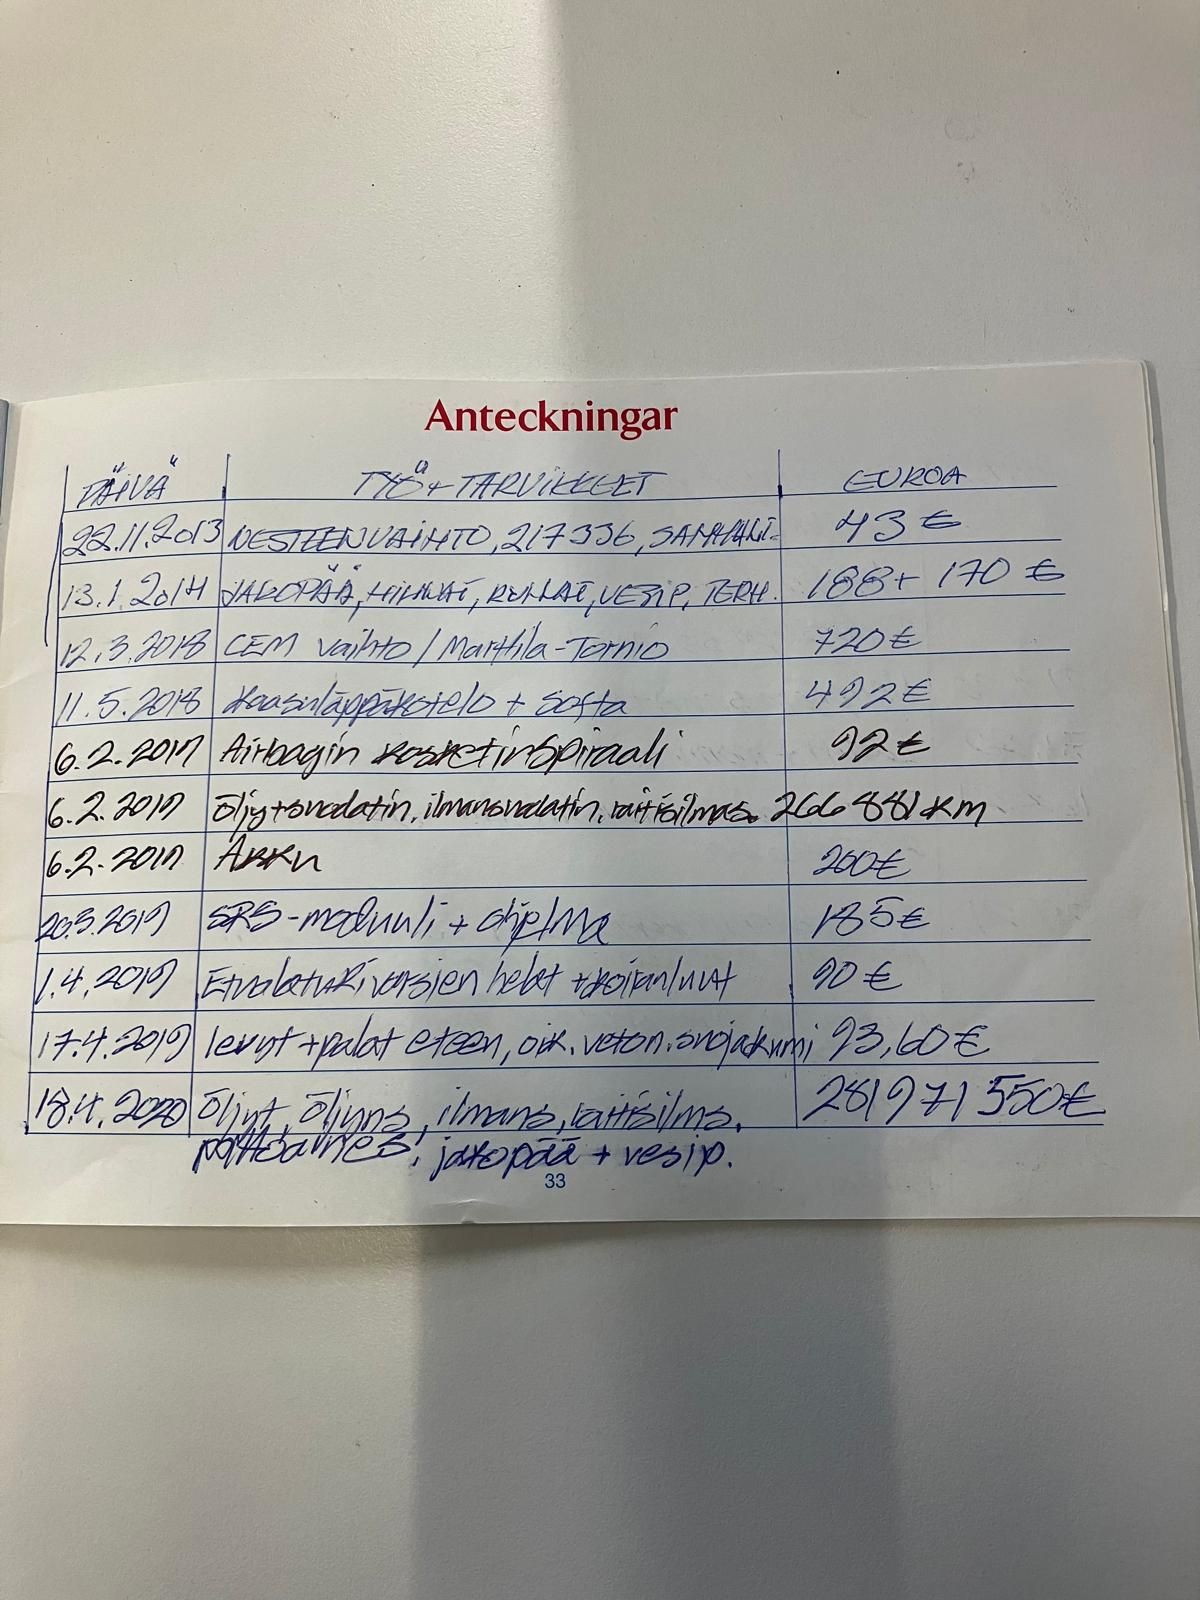 Anteckningar
PÄIVÄ TYÖ + TARVIKKEET EUROA
22.11.2013 NESTEENVAIHTO, 217336, 43 €
13.1.2014 JAKOPÄÄ, HIHNAT, RULLAT, VESIP, TERM. 188 + 170 €
12.3.2018 CEM vaihto / Marttila-Tornio 720 €
11.5.2018 Kaasuläppäkotelo + Softa 492 €
6.2.2019 Airbagin kosketinspiraali 92 €
6.2.2019 öljy+suodatin, ilmansuodatin, raitisilmas. 266 881 km
6.2.2019 Akku 200 €
20.3.2019 SRS-moduuli + ohjelma 185 €
1.4.2019 Etualatukivarsien helat + koiranluut 90 €
17.4.2019 levyt + palat eteen, oik. veton. suojakumi 93,60 €
18.4.2020 Öljyt, öljyns, ilmans, raitisilms, 281971 550 €
polttoaines, jakopää + vesip.
33